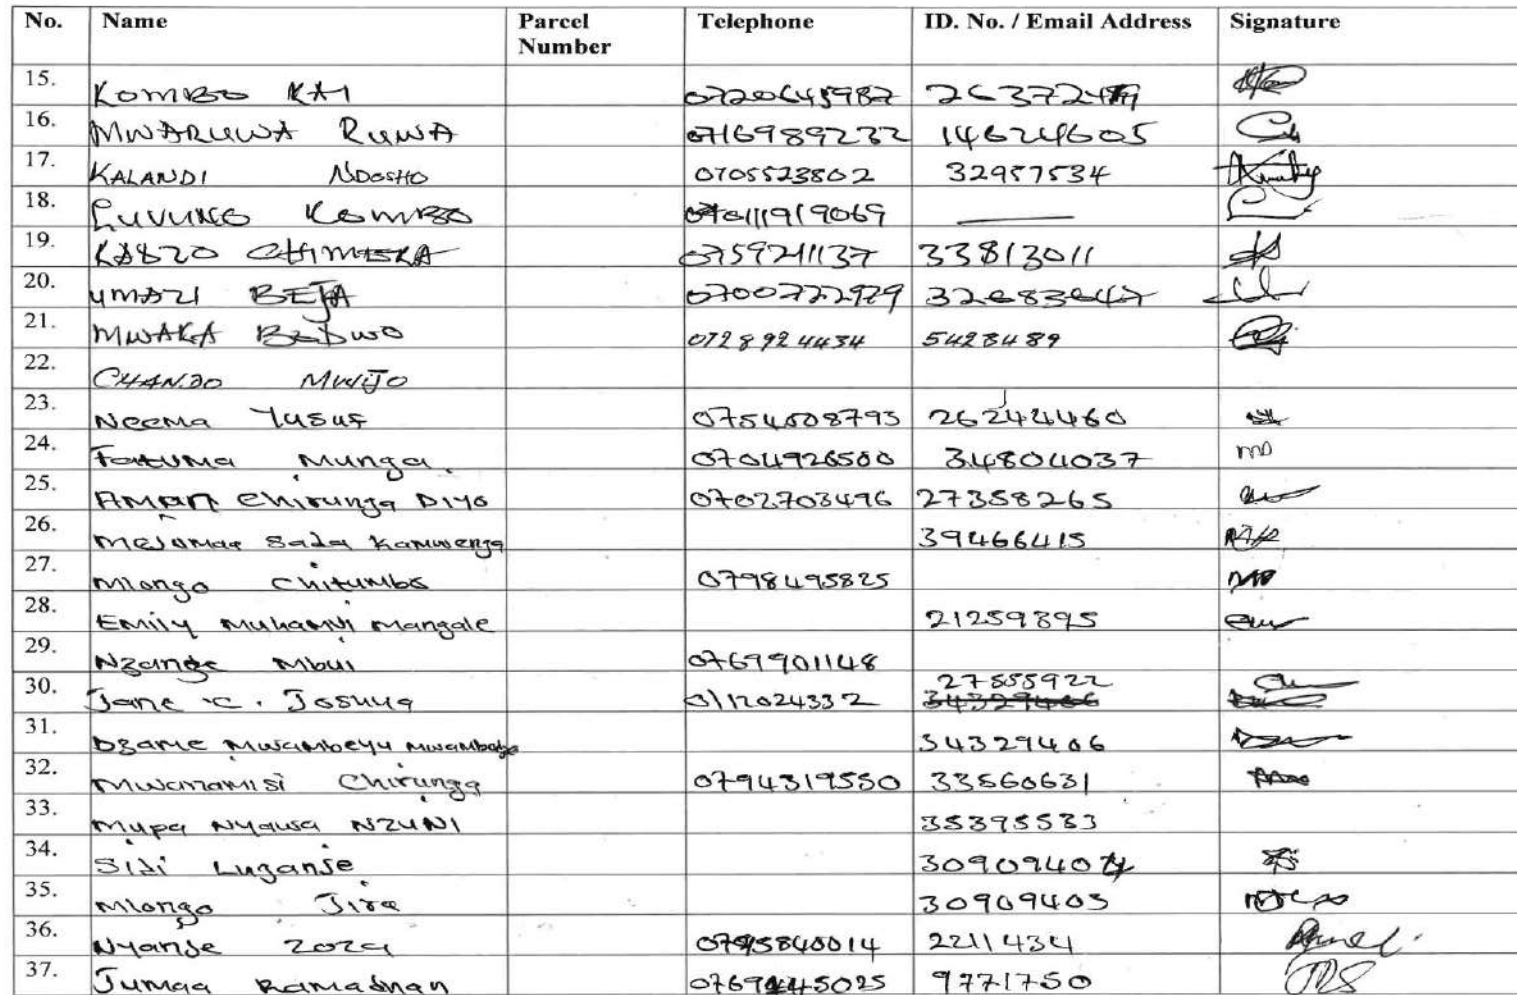 No. Name Parcel Number Telephone ID. No. / Email Address Signature
15. KOMBO KAI 0720645987
16. MWARUWA RUWA 0716989232 14624605
17. KALANDI NDOSHO 0705523802 32957534
18. LUVUNO KOMBO
19. CHIMERA 0759211137 33813011
20. UMAZI BEJA 0700722979 32683647
21. MWAKA BEDWO 0728924434 5428489
22. CHANDO MWIJO
23. Neema Yusuf 0754508793 26244460
24. Fatuma Munga 0704926500 34804037
25. AMANI Chirunga DIYO 0702703496 27358265
26. Mejumaa Sada Kamwenga 39466415
27. Mlongo Chitumbo 0798495825
28. Emily Muhamvi Mangale 21259895
29. Nzange Mbui 0769901148
30. Jane C. Josuua 0112024332 27555922
31. Dzame Mwambeyu 34329406
32. Mwanamisi Chirunga 0794319550 33560631
33. Mupa Nyawa NZUNI 35395533
34. Sidi Luganje
35. Mlongo Jira 30909405
36. Nyanje Zoza 22111434
37. Jumaa Ramadhan 9771750